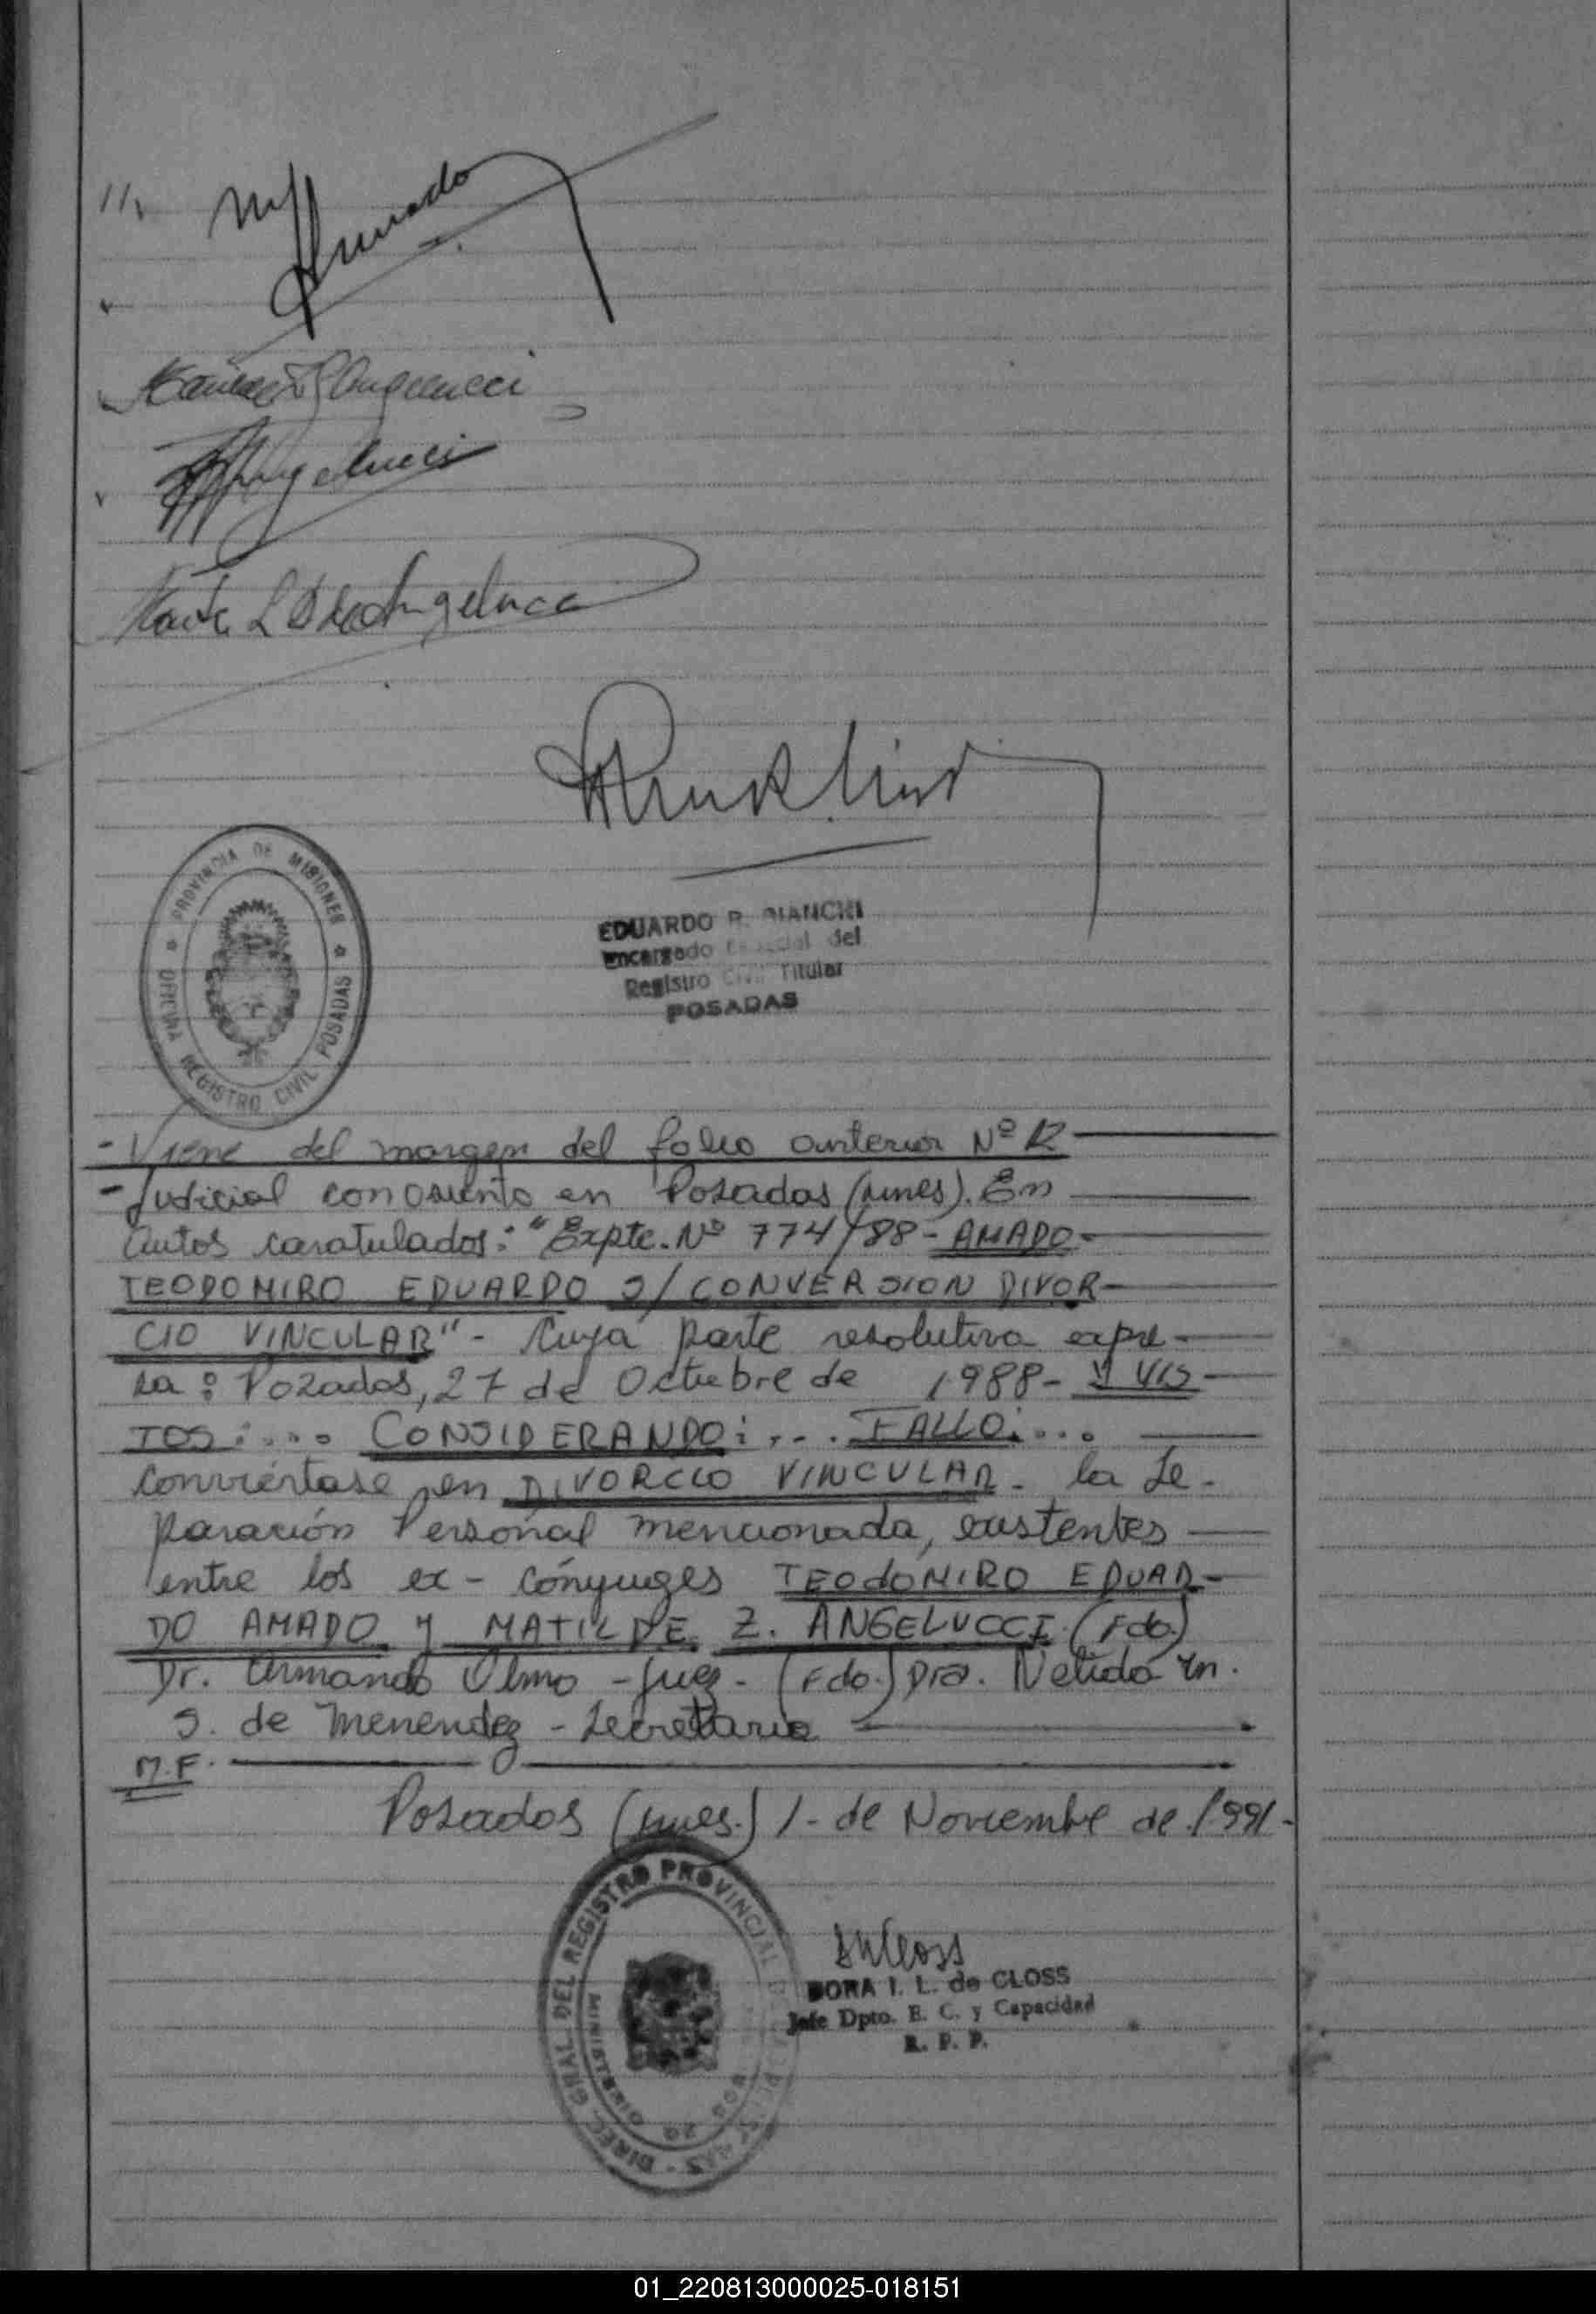 Amado
Angelucci
Angelucci
L. de Angelucci
PROVINCIA DE MISIONES
OFICINA REGISTRO CIVIL POSADAS
EDUARDO R. BIANCHI
Encargado del
Registro Civil Titular
POSADAS
- Viene del margen del folio anterior Nº 12
- Judicial con asiento en Posadas (Mnes). En
Autos caratulados: "Expte. Nº 774/88 - AMADO
TEODOMIRO EDUARDO S/ CONVERSION DIVOR-
CIO VINCULAR" - Cuya parte resolutiva expre-
sa: Posadas, 27 de Octubre de 1988 - Y VIS-
TOS: ... CONSIDERANDO: ... FALLO: ...
Conviértase en DIVORCIO VINCULAR - la Se-
paración Personal mencionada, existentes
entre los ex-cónyuges TEODOMIRO EDUAR-
DO AMADO y MATILDE Z. ANGELUCCI. (Fdo.)
Dr. Armando Olmo - Juez - (Fdo.) Dra. Nelida M.
S. de Menendez - Secretaria
M.F.
Posadas (Mnes.) 1 - de Noviembre de 1991 -
DIREC. GRAL. DEL REGISTRO PROVINCIAL
MINISTERIO DE GOB
DORA I. L. de CLOSS
Jefe Dpto. E. C. y Capacidad
R. P. P.
01_220813000025-018151